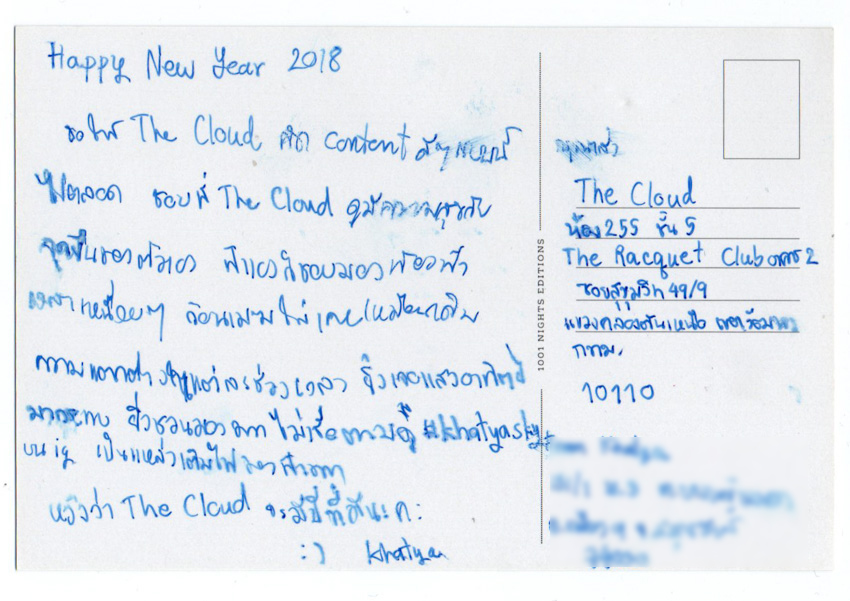 Happy New Year 2018
ขอให้ The Cloud ผลิต content ดีๆ แบบนี้
ไปตลอด ชอบที่ The Cloud ดูมีความสุขกับ
จุดยืนของตัวเอง ชอบมองท้องฟ้า
เวลาเหนื่อยๆ ก้อนเมฆไม่เคยเหมือนเดิม
ความแตกต่างในแต่ละช่วงเวลา ยิ่งเจอแสงอาทิตย์
มากระทบ ยิ่งชวนมอง ไม่เชื่อตามดู #khatyasky
บน ig เป็นแหล่งเติมไฟ
หวังว่า The Cloud จะมีนะคะ
:) khatya
The Cloud
ห้อง 255 ชั้น 5
The Racquet Club อาคาร 2
ซอยสุขุมวิท 49/9
แขวงคลองตันเหนือ เขตวัฒนา
กทม.
10110
1001 NIGHTS EDITIONS